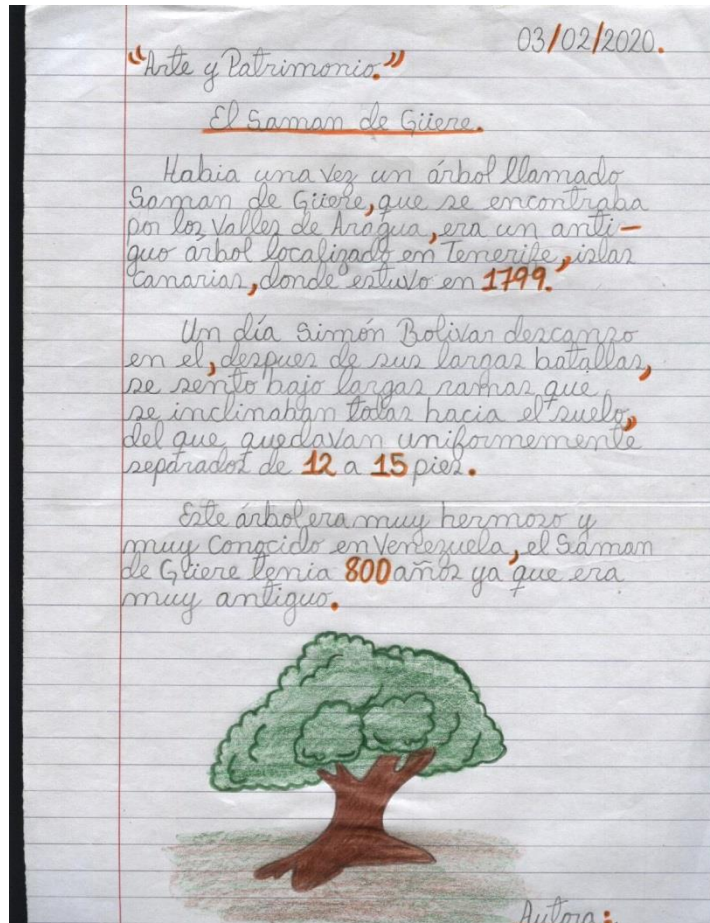 03/02/2020.
"Arte y Patrimonio."
El Saman de Güere.
Habia una vez un árbol llamado
Saman de Güere, que se encontraba
por los Valles de Aragua, era un anti-
guo árbol localizado en Tenerife, islas
canarias, donde estuvo en 1799.
Un día Simón Bolivar descanzo
en el, despues de sus largas batallas,
se sento bajo largas ramas que
se inclinaban todas hacia el suelo,
del que quedavan uniformemente
separados de 12 a 15 pies.
Este árbol era muy hermoso y
muy conocido en Venezuela, el Saman
de Güere tenia 800 años ya que era
muy antiguo.
Autora: